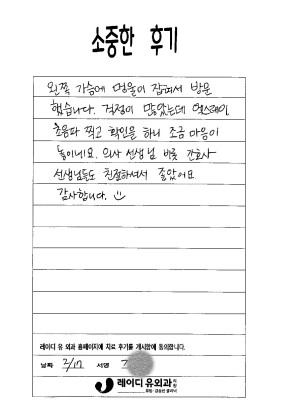 소중한 후기
왼쪽 가슴에 멍울이 잡혀서 방문
했습니다. 걱정이 많았는데 엑스레이,
초음파 찍고 확인을 하니 조금 마음이
놓이네요. 의사 선생님 비롯 간호사
선생님들도 친절하셔서 좋았어요
감사합니다.
레이디 유 외과 홈페이지에 치료 후기를 게시함에 동의합니다.
날짜 2/17 서명
레이디유외과의원